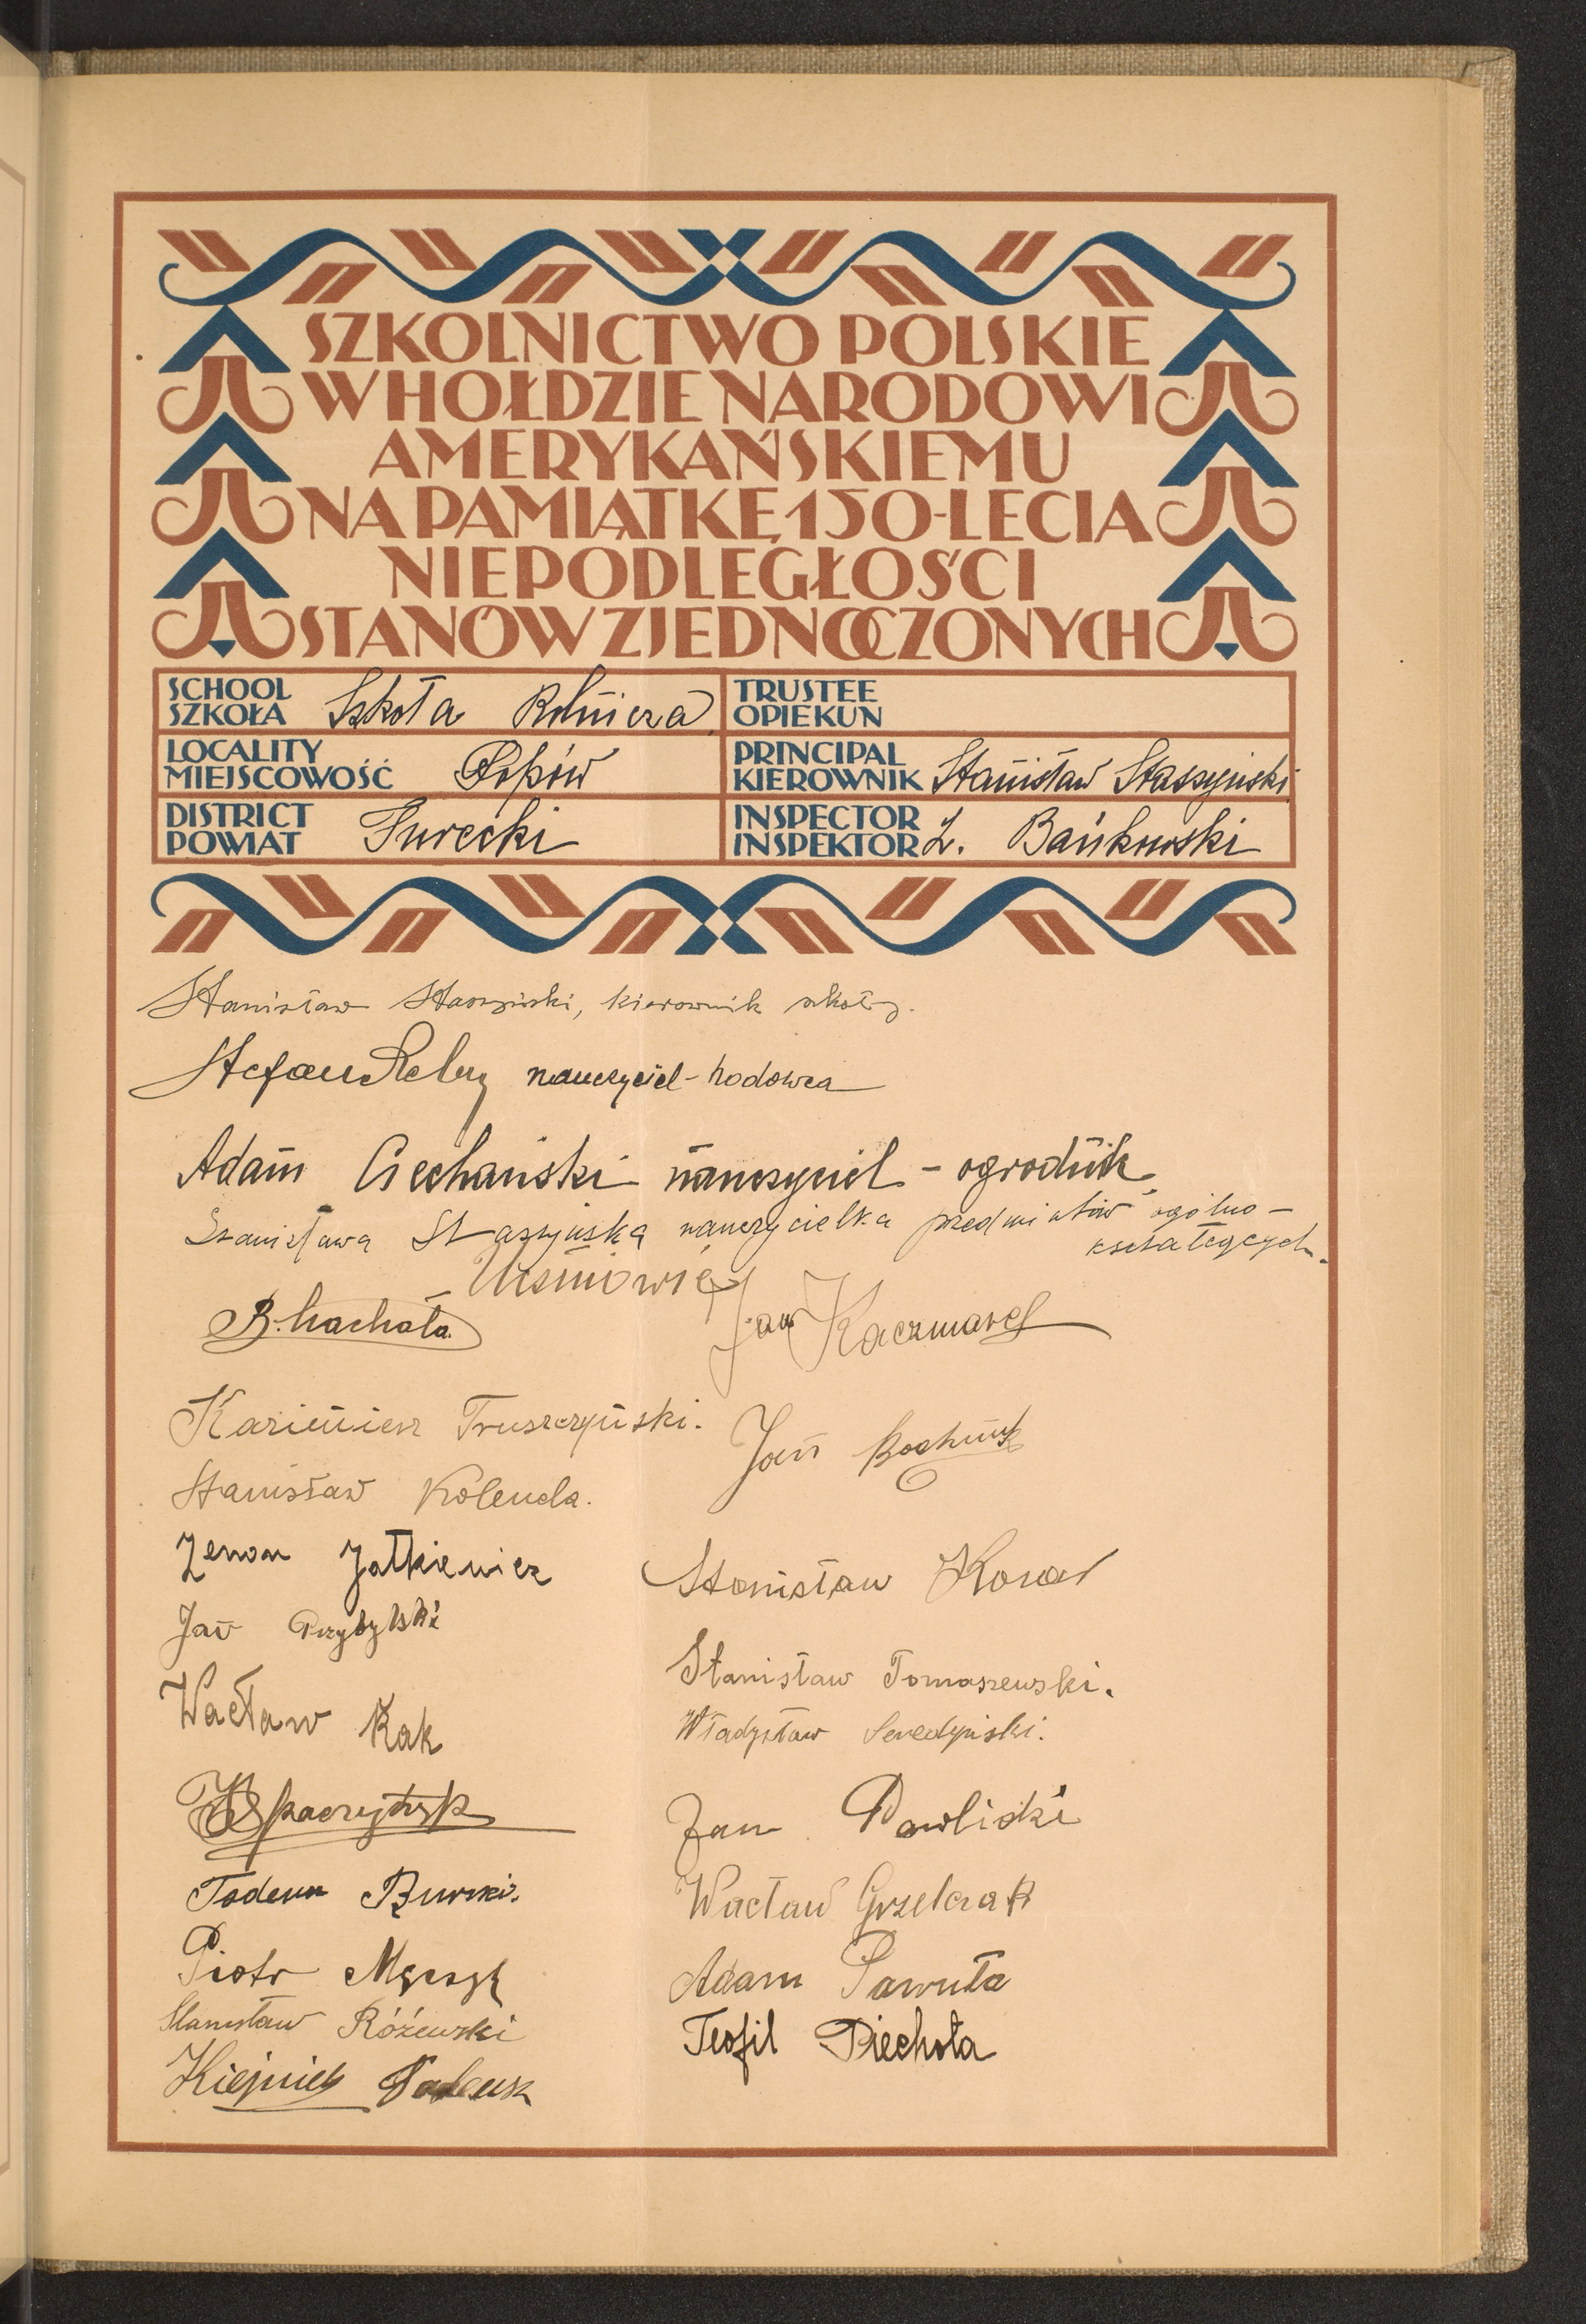 SZKOLNICTWO POLSKIE
W HOŁDZIE NARODOWI
AMERYKAŃSKIEMU
NA PAMIĄTKĘ 150-LECIA
NIEPODLEGŁOŚCI
STANÓW ZJEDNOCZONYCH
SCHOOL
SZKOŁA Szkoła Rolnicza
TRUSTEE
OPIEKUN
LOCALITY
MIEJSCOWOŚĆ Popów
PRINCIPAL
KIEROWNIK Stanisław Staszyński
DISTRICT
POWIAT Turecki
INSPECTOR
INSPEKTOR Z. Bańkowski
Stanisław Staszyński, kierownik szkoły.
Stefan nauczyciel-hodowca
Adam Ciechański nauczyciel - ogrodnik
Stanisława Staszyńska nauczycielka przedmiotów ogólno-
kształcących.
Uczniowie
B. Machała
Jan Kaczmarek
Kazimierz Truszczyński.
Jan
Stanisław Kolenda.
Zenon Jatkiewicz
Stanisław
Jan Przybylski
Stanisław Tomaszewski.
Wacław Kak
Władysław Seredyński.
Jan Pawliski
Tadeusz Burski.
Wacław Grzelczak
Piotr
Adam Pawuła
Stanisław Różewski
Teofil Piechota
Tadeusz